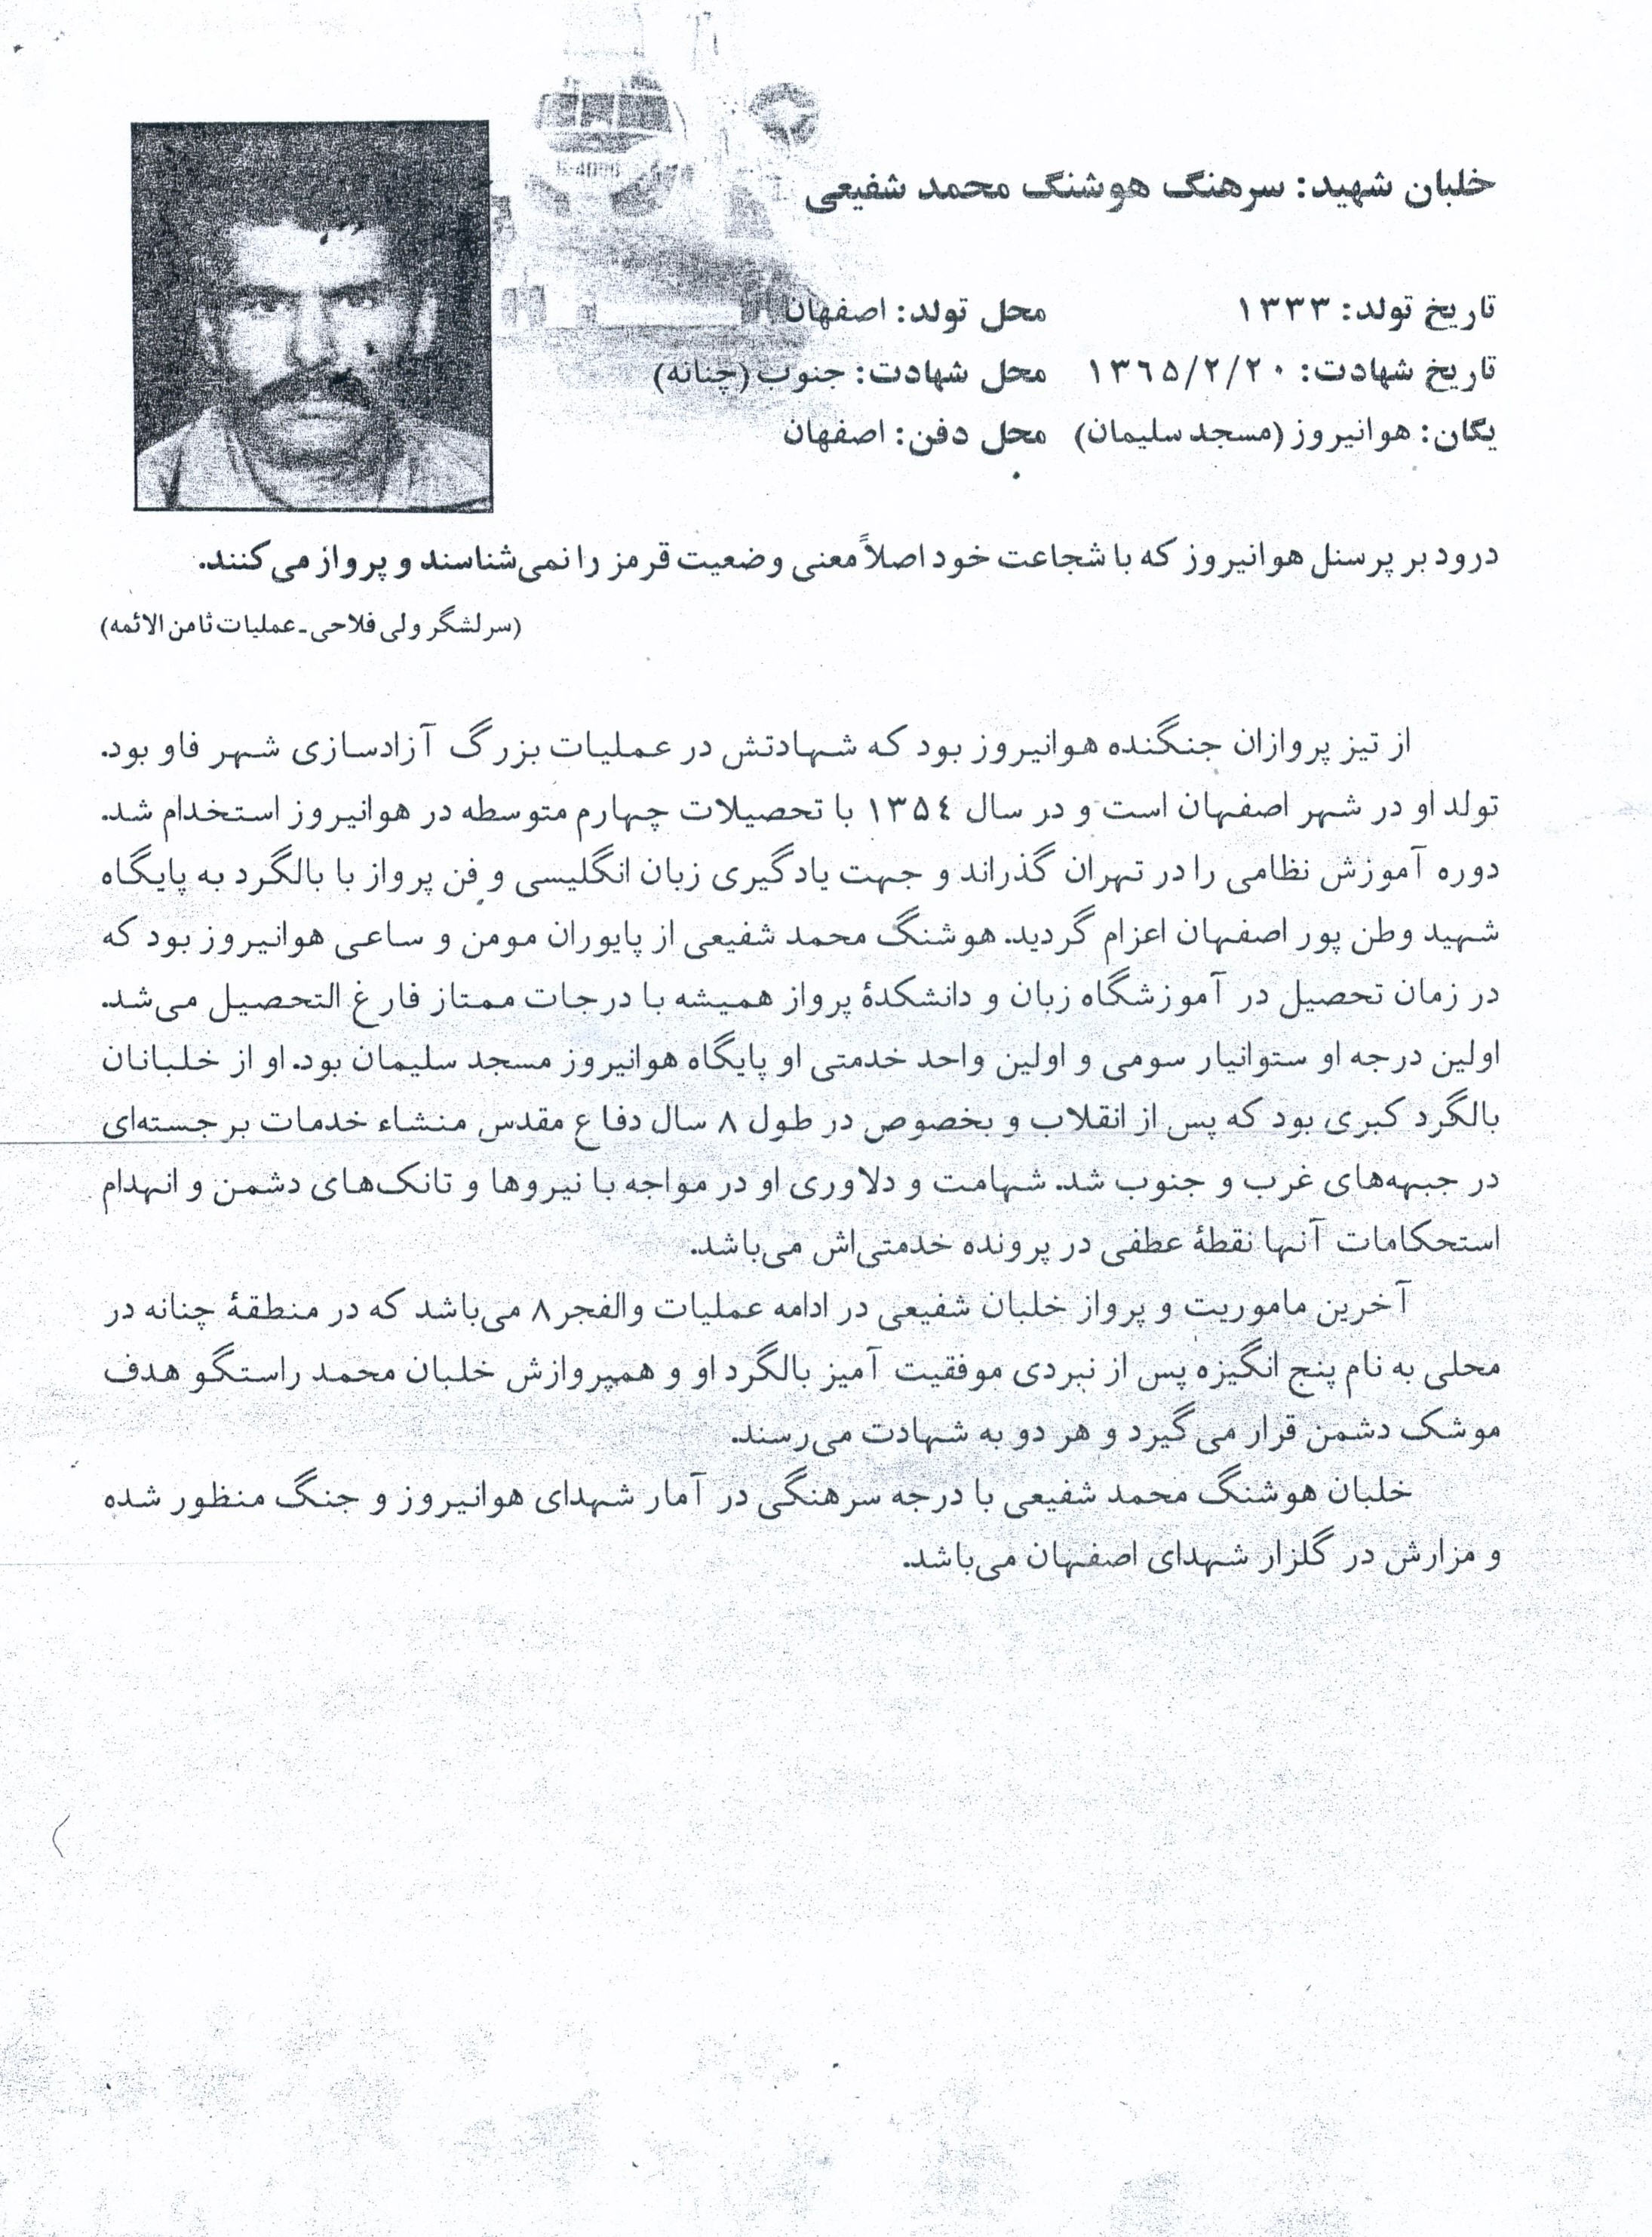 خلبان شهید: سرهنگ هوشنگ محمد شفیعی
تاریخ تولد: ۱۳۳۳ محل تولد: اصفهان
تاریخ شهادت: ۱۳۶۵/۲/۲۰ محل شهادت: جنوب (چنانه)
یگان: هوانیروز (مسجد سلیمان) محل دفن: اصفهان
درود بر پرسنل هوانیروز که با شجاعت خود اصلاً معنی وضعیت قرمز را نمی‌شناسند و پرواز می‌کنند.
(سرلشگر ولی فلاحی ـ عملیات ثامن الائمه)
از تیز پروازان جنگنده هوانیروز بود که شهادتش در عملیات بزرگ آزادسازی شهر فاو بود.
تولد او در شهر اصفهان است و در سال ۱۳۵۴ با تحصیلات چهارم متوسطه در هوانیروز استخدام شد.
دوره آموزش نظامی را در تهران گذراند و جهت یادگیری زبان انگلیسی و فن پرواز با بالگرد به پایگاه
شهید وطن پور اصفهان اعزام گردید. هوشنگ محمد شفیعی از پایوران مومن و ساعی هوانیروز بود که
در زمان تحصیل در آموزشگاه زبان و دانشکدهٔ پرواز همیشه با درجات ممتاز فارغ التحصیل می‌شد.
اولین درجه او ستوانیار سومی و اولین واحد خدمتی او پایگاه هوانیروز مسجد سلیمان بود. او از خلبانان
بالگرد کبری بود که پس از انقلاب و بخصوص در طول ۸ سال دفاع مقدس منشاء خدمات برجسته‌ای
در جبهه‌های غرب و جنوب شد. شهامت و دلاوری او در مواجه با نیروها و تانک‌های دشمن و انهدام
استحکامات آنها نقطهٔ عطفی در پرونده خدمتی‌اش می‌باشد.
آخرین ماموریت و پرواز خلبان شفیعی در ادامه عملیات والفجر۸ می‌باشد که در منطقهٔ چنانه در
محلی به نام پنج انگیزه پس از نبردی موفقیت آمیز بالگرد او و همپروازش خلبان محمد راستگو هدف
موشک دشمن قرار می‌گیرد و هر دو به شهادت می‌رسند.
خلبان هوشنگ محمد شفیعی با درجه سرهنگی در آمار شهدای هوانیروز و جنگ منظور شده
و مزارش در گلزار شهدای اصفهان می‌باشد.